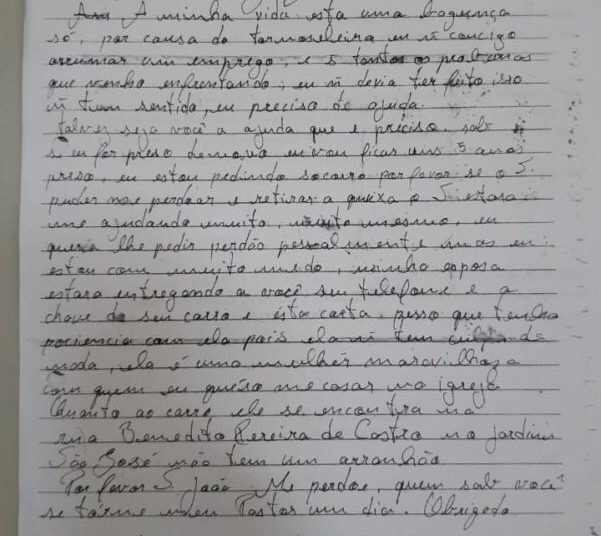 A minha vida esta uma bagunça
só, por causa da tornoseleira eu ñ concigo
arrumar um emprego, e são tantos os problemas
que venho enfrentando, eu ñ devia ter feito isso
ñ tem sentido, eu preciso de ajuda.
talvez seja você a ajuda que e preciso. sabe
se eu for preso denovo eu vou ficar uns 5 anos
preso, eu estou pedindo socorro por favor se o S.
puder me perdoar e retirar a queixa o S. estara
me ajudando muito, muito mesmo, eu
queria lhe pedir perdão pessoalmente mas eu
estou com muito medo, minha esposa
estara entregando a você seu telefone e a
chave do seu carro e esta carta. pesso que tenha
paciencia com ela pois ela ñ tem culpa de
nada, ela é uma mulher maravilhosa
com quem eu quero me casar na igreja
Quanto ao carro, ele se encontra na
rua Benedito Pereira de Castro no jardim
São José não tem um arranhão
Por favor S. João Me perdoe, quem sabe você
se torne meu Pastor um dia. Obrigado.